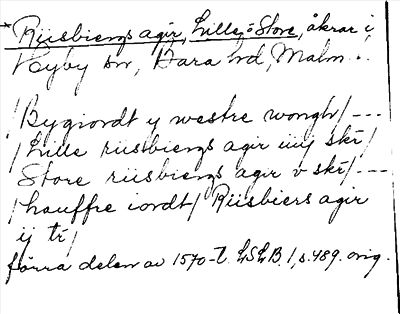 *Riisbiergs agir, Lille o Store, åkrar i
Kyby sn, Bara hd, Malm..
/Bygiordt y westre wongh/ ---
/Lille riisbiergs agir iiij skr/
Store riisbiergs agir v skr/ ---
/hauffre iordt/ Riisbiers agir
ij tr/
förra delen av 1570-t. LSLB. 1, s. 489. orig.